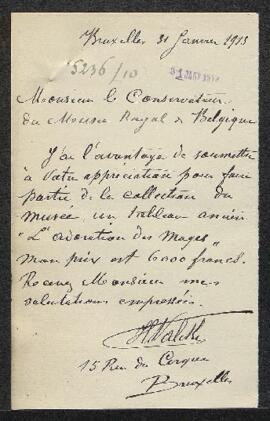 Bruxelles 31 Janvier 1913
5236/10
Monsieur le Conservateur
du Museou Royal de Belgique
J'ai l'avantage de soumettre
à votre appréciation pour faire
partie de la collection du
musée un tableau ancien
"L'adoration des Mages"
mon prix est 6000 francs.
Recevez Monsieur mes
salutations empressées.
15 Rue du Cirque
Bruxelles